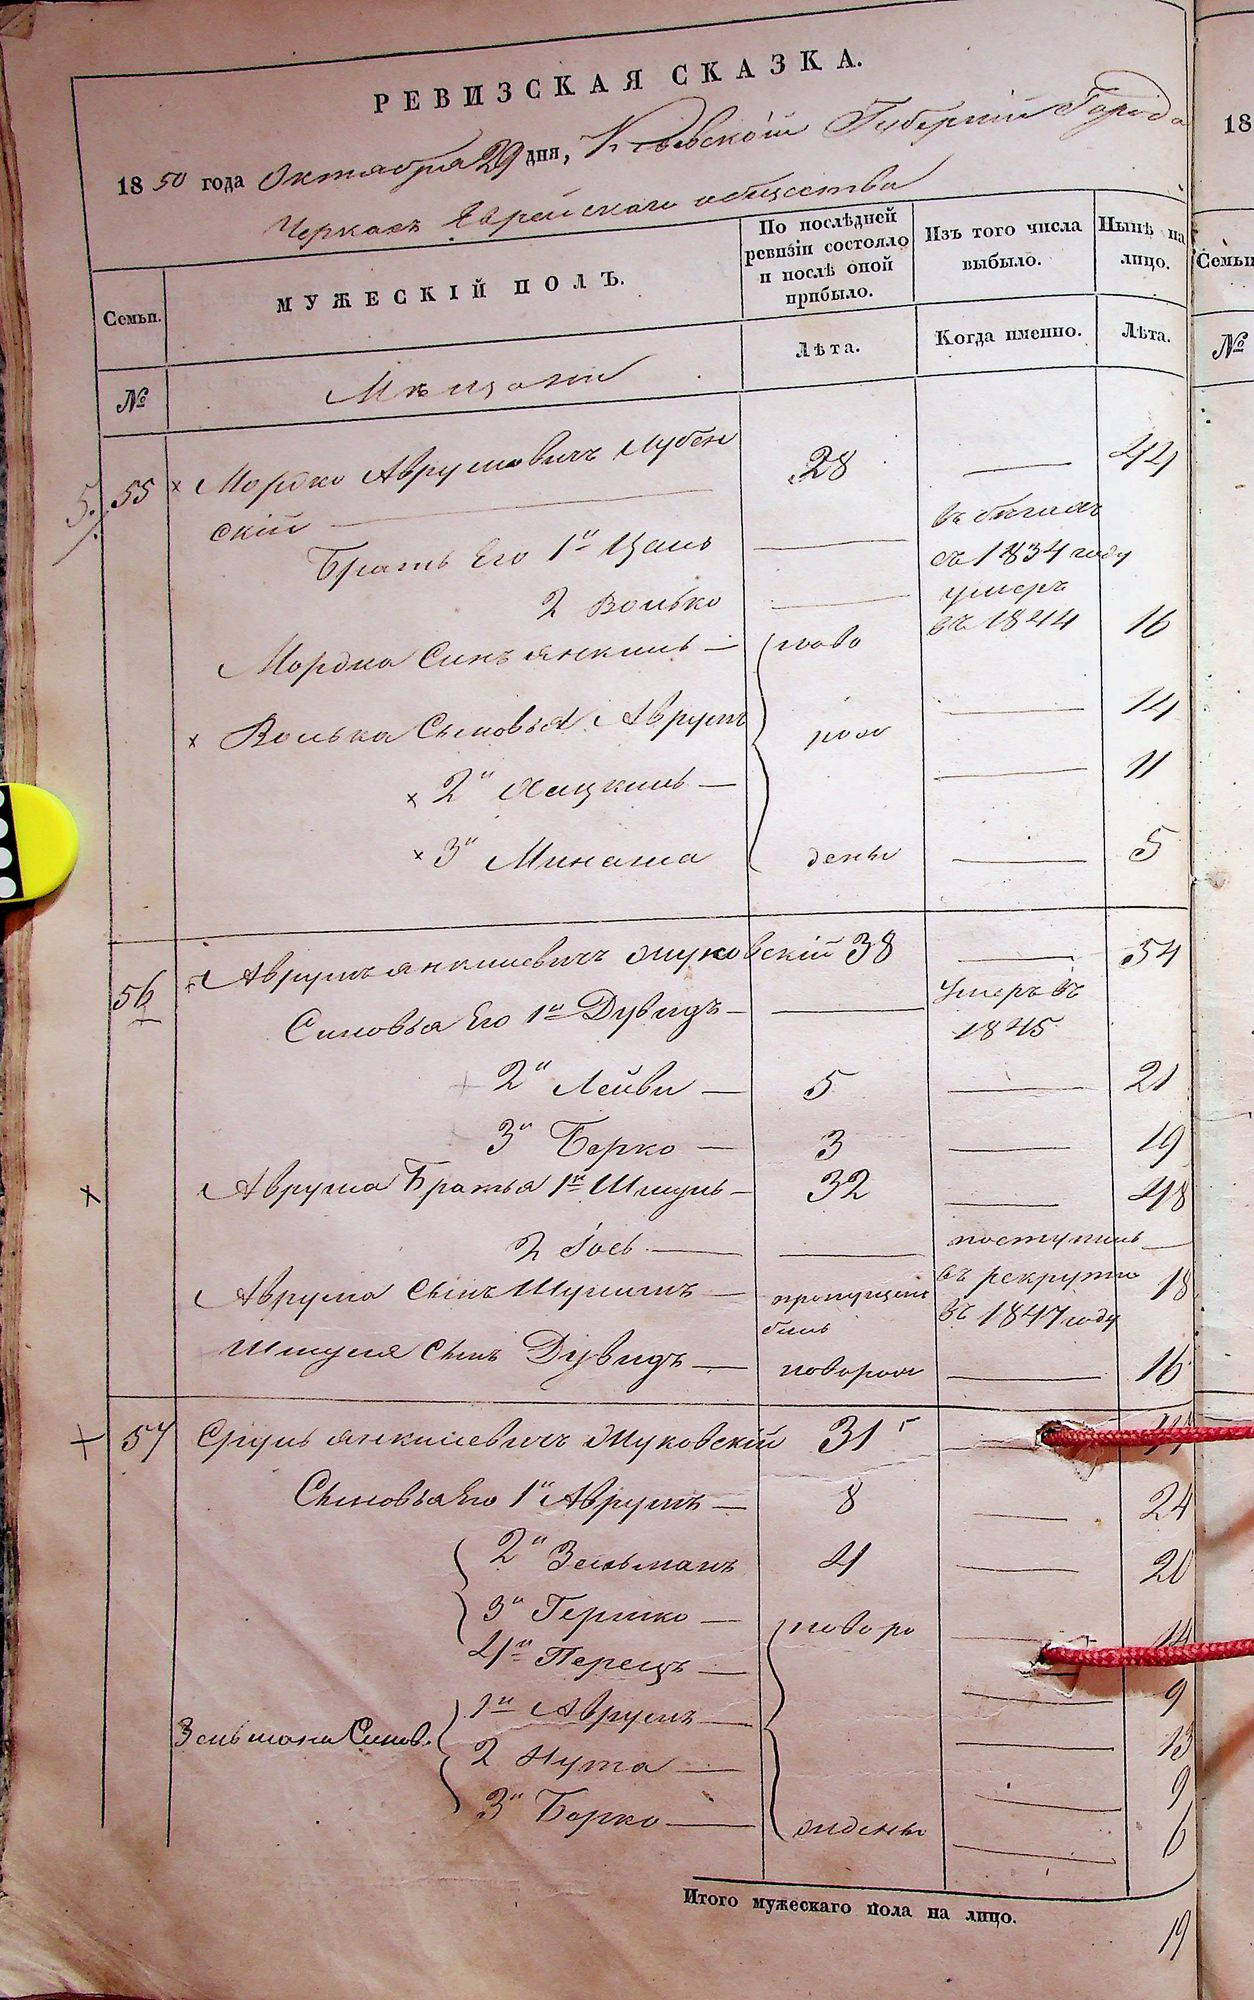 РЕВИЗСКАЯ СКАЗКА.
1850 года Октября 29 дня, Киевской Губернии Города
Черкас Еврейского общества
Семьи.
МУЖЕСКІЙ ПОЛЪ.
По послѣдней ревизіи состояло и послѣ оной прибыло.
Изъ того числа выбыло.
Нынѣ на лицо.
Лѣта.
Когда именно.
Лѣта.
№
Мѣщане
55 Мордко Аврумовичъ Лубен 28 — 44
скій
Братъ Его 1й — въ бегахъ
съ 1834 году
2 Волько — умеръ
въ 1844
Мордка Синъ Янкиль — ново 16
Волька Сыновья Аврумъ рож — 14
2й Хацкиль — — 11
3й Минаша дены — 5
56 Аврумъ Янкилевичъ Жуковскій 38 — 54
Синовья Его 1й Дувидъ — — Умеръ въ
1845
2й Лейви — 5 — 21
3й Берко — 3 — 19
Аврума Братья 1й Шмуль — 32 — 48
2 Іось — — поступилъ —
въ рекруты
въ 1847 году
Аврума Сынъ Шулимъ — пропущенъ 18
былъ
Шмуля Сынъ Дувидъ — новорож — 16
57 Сруль Янкилевичъ Жуковскій 31 —
Сыновья Его 1й Аврумъ — 8 — 24
2й Зельманъ 4 — 20
3й Гершко — новоро — 14
4й Перецъ —
1й Аврумъ — — 9
Зельмана Синов. 2 Нута — — 13
9
3й Берко — жденны — 6
Итого мужескаго пола на лицо.
19
18
Семьи
№